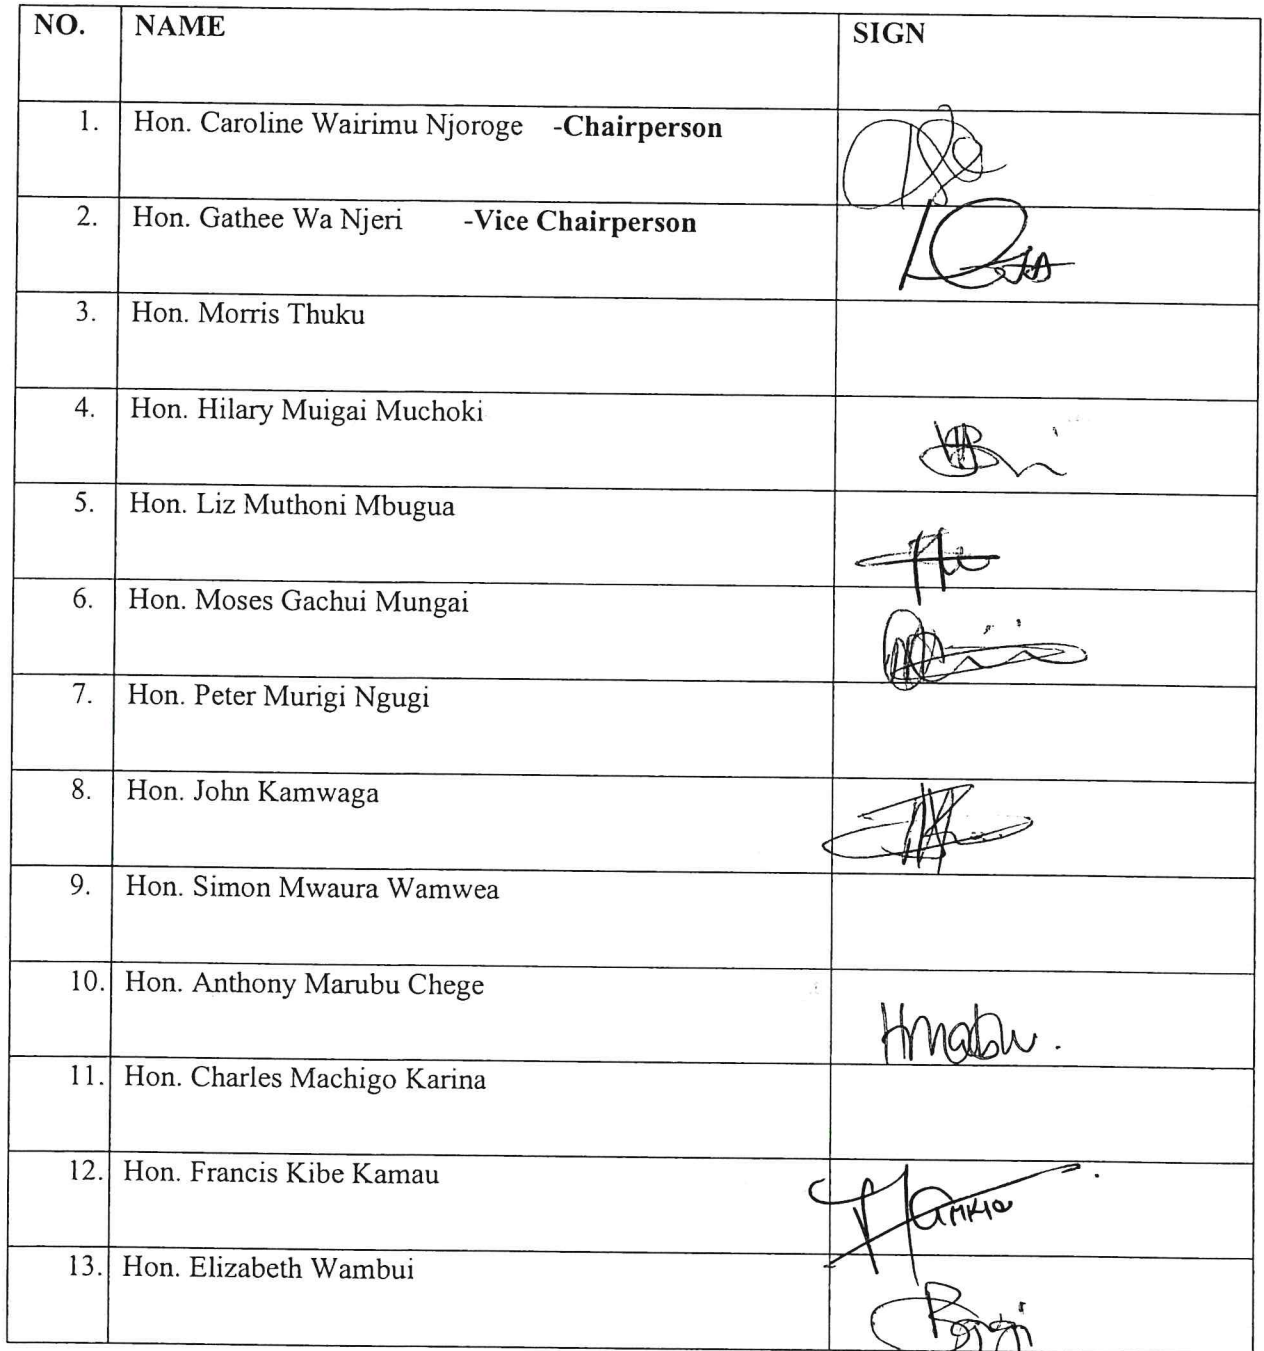 NO. NAME SIGN
1. Hon. Caroline Wairimu Njoroge -Chairperson
2. Hon. Gathee Wa Njeri -Vice Chairperson
3. Hon. Morris Thuku
4. Hon. Hilary Muigai Muchoki
5. Hon. Liz Muthoni Mbugua
6. Hon. Moses Gachui Mungai
7. Hon. Peter Murigi Ngugi
8. Hon. John Kamwaga
9. Hon. Simon Mwaura Wamwea
10. Hon. Anthony Marubu Chege
11. Hon. Charles Machigo Karina
12. Hon. Francis Kibe Kamau
13. Hon. Elizabeth Wambui